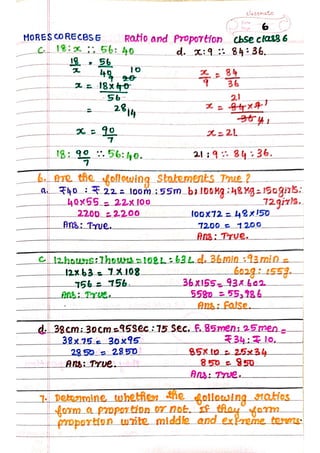 classmate
6
MORESCORECBSE Ratio and Proportion cbse class 6
c. 18 : x :: 56 : 40
18/x = 56/40
x = 18×40/56
10
20
28
14
x = 90/7
18 : 90/7 :: 56 : 40.
d. x : 9 :: 84 : 36.
x/9 = 84/36
21
x = 84×9/36
x = 21
21 : 9 :: 84 : 36.
6. Are the following Statements True?
a. ₹40 : ₹22 = 100m : 55m
40×55 = 22×100
2200 = 2200
Ans: True.
b) 100kg : 48kg = 150girls :
72girls.
100×72 = 48×150
7200 = 7200
Ans: True.
c 12hours : 7hours = 108L : 63L
12×63 = 7×108
756 = 756
Ans: True.
d. 36min : 93min =
602g : 155g.
36×155 = 93×602
5580 = 55,986
Ans: False.
d. 38cm : 30cm = 95Sec : 75 Sec.
38×75 = 30×95
2850 = 2850
Ans: True.
F. 85men : 25men =
₹34 : ₹10.
85×10 = 25×34
850 = 850
Ans: True.
7. Determine whether the following ratios
form a proportion or not. If they form
proportion write middle and extreme terms.